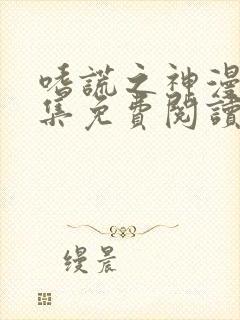 嗜謊之神漫
集免費閱讀
缦晨